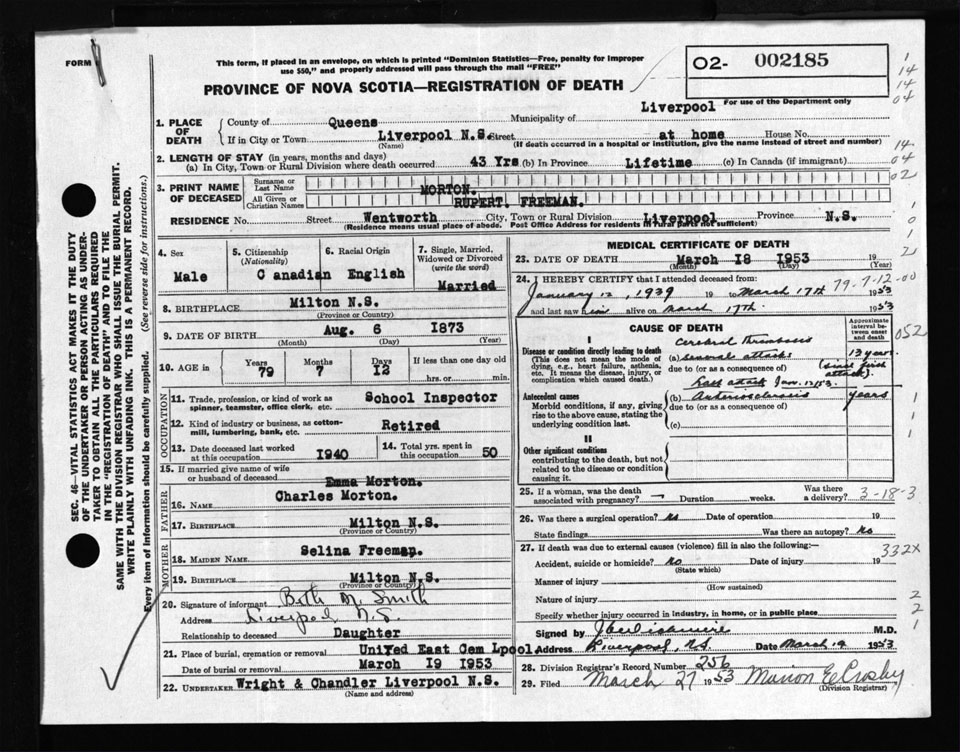 FORM
This form, if placed in an envelope, on which is printed "Dominion Statistics—Free, penalty for improper
use $50," and properly addressed will pass through the mail "FREE"
PROVINCE OF NOVA SCOTIA—REGISTRATION OF DEATH
O2- 002185
For use of the Department only
1. PLACE OF DEATH
County of Queens Municipality of Liverpool
If in City or Town Liverpool N.S. Street at home House No.
(Name) (If death occurred in a hospital or institution, give the name instead of street and number)
2. LENGTH OF STAY (in years, months and days)
(a) In City, Town or Rural Division where death occurred 43 Yrs (b) In Province Lifetime (c) In Canada (if immigrant)
3. PRINT NAME OF DECEASED
Surname or Last Name MORTON.
All Given or Christian Names RUPERT. FREEMAN.
RESIDENCE No. Street Wentworth City, Town or Rural Division Liverpool Province N.S.
(Residence means usual place of abode. Post Office Address for residents in rural parts not sufficient)
4. Sex Male
5. Citizenship (Nationality) Canadian
6. Racial Origin English
7. Single, Married, Widowed or Divorced (write the word) Married
8. BIRTHPLACE Milton N.S.
(Province or Country)
9. DATE OF BIRTH Aug. 6 1873
(Month) (Day) (Year)
10. AGE in Years 79 Months 7 Days 12 If less than one day old
hrs. or min.
OCCUPATION
11. Trade, profession, or kind of work as spinner, teamster, office clerk, etc. School Inspector
12. Kind of industry or business, as cotton-mill, lumbering, bank, etc. Retired
13. Date deceased last worked at this occupation 1940
14. Total yrs. spent in this occupation 50
15. If married give name of wife or husband of deceased Emma Morton.
FATHER
16. NAME Charles Morton.
17. BIRTHPLACE Milton N.S.
(Province or Country)
MOTHER
18. MAIDEN NAME Selina Freeman.
19. BIRTHPLACE Milton N.S.
(Province or Country)
20. Signature of informant Beth M. Smith
Address Liverpool N.S.
Relationship to deceased Daughter
21. Place of burial, cremation or removal United East Cem Lpool.
Date of burial or removal March 19 1953
22. UNDERTAKER Wright & Chandler Liverpool N.S.
(Name and address)
MEDICAL CERTIFICATE OF DEATH
23. DATE OF DEATH March 18 1953 19
(Month) (Day) (Year)
24. I HEREBY CERTIFY that I attended deceased from:
January 12, 1939 19 to March 17th 1953
and last saw him alive on March 17th 1953
79-7-12-00
CAUSE OF DEATH
Approximate interval between onset and death
I
Disease or condition directly leading to death
(This does not mean the mode of dying, e.g., heart failure, asthenia, etc. It means the disease, injury, or complication which caused death.)
Cerebral Thrombosis
(a) several attacks 13 years
due to (or as a consequence of) (since first attack).
Last attack Jan. 12/53.
Antecedent causes
Morbid conditions, if any, giving rise to the above cause, stating the underlying condition last.
(b) Arteriosclerosis years
due to (or as a consequence of)
(c)
II
Other significant conditions
contributing to the death, but not related to the disease or condition causing it.
25. If a woman, was the death associated with pregnancy? — Duration weeks. Was there a delivery?
3-18-3
26. Was there a surgical operation? No Date of operation 19
State findings Was there an autopsy? No
27. If death was due to external causes (violence) fill in also the following:—
Accident, suicide or homicide? No Date of injury 19
(State which)
332X
Manner of injury
(How sustained)
Nature of injury
Specify whether injury occurred in industry, in home, or in public place
Signed by M.D.
Address Liverpool, N.S. Date March 19 1953
28. Division Registrar's Record Number 256
29. Filed March 27 1953 Marion E Crosby
(Division Registrar)
SEC. 46 VITAL STATISTICS ACT MAKES IT THE DUTY
OF THE UNDERTAKER OR PERSON ACTING AS UNDER-
TAKER TO OBTAIN ALL THE PARTICULARS REQUIRED
IN THE "REGISTRATION OF DEATH" AND TO FILE THE
SAME WITH THE DIVISION REGISTRAR WHO SHALL ISSUE THE BURIAL PERMIT.
WRITE PLAINLY WITH UNFADING INK. THIS IS A PERMANENT RECORD.
Every item of information should be carefully supplied. (See reverse side for instructions.)
1
14
14
04
14
04
02
1
0
1
2
052
1
1
1
2
2
1